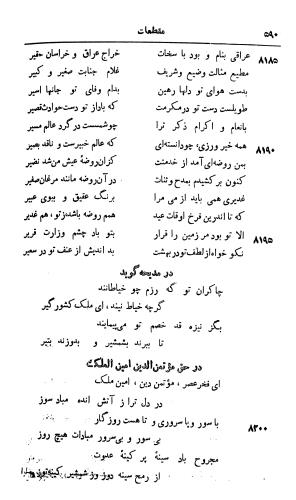 ۵۹۰
مقطعات
۸۱۸۵
عراقی بنام و بود با سخات خراج عراق و خراسان حقیر
مطیع مثالت وضیع و شریف غلام جنابت صغیر و کبیر
بدست هوای تو دلها رهین بدام وفای تو جانها اسیر
طویلست رسم تو در مکرمت که باد از تو دست حوادث قصیر
بانعام و اکرام ذکر ترا چو شمست در گرد عالم مسیر
۸۱۹۰
همه خیر ورزی، چو دانسته‌ای که عالم خبیرست و ناقد بصیر
ببن روضه‌ای آمد از خدمتت کزان روضهٔ عیش من شد نضیر
کنون بر کشیدم بمدح و ثنات در آن روضه مانند مرغان صفیر
غدیری همی باید از می مرا برنگ عقیق و ببوی عبیر
که تا اندرین فرخ اوقات عید همم روضه باشد ز تو، هم غدیر
۸۱۹۵
الا تو بود مر زمین را قرار بتو باد چشم وزارت قریر
نکو خواه از لطف تو در بهشت بد اندیش از عنف تو در سعیر
در مدیحه گوید
چاکران تو که رزم چو خیاطانند
گرچه خیاط نیند، ای ملک کشور گیر
بگز نیزه قد خصم تو می‌پیمایند
تا ببرند بشمشیر و بدوزند بتیر
در حق مؤتمن الدین امین الملک
ای فخر عصر، مؤتمن دین، امین ملک
در دل ترا ز آتش انده مباد سوز
۸۲۰۰
با سور و با سروری و تا هست روزگار
بی سور و بی سرور مبادات هیچ روز
مجروح باد سینهٔ پر کینهٔ عدوت
از رمح سینه روز و شمشیر کینه توز